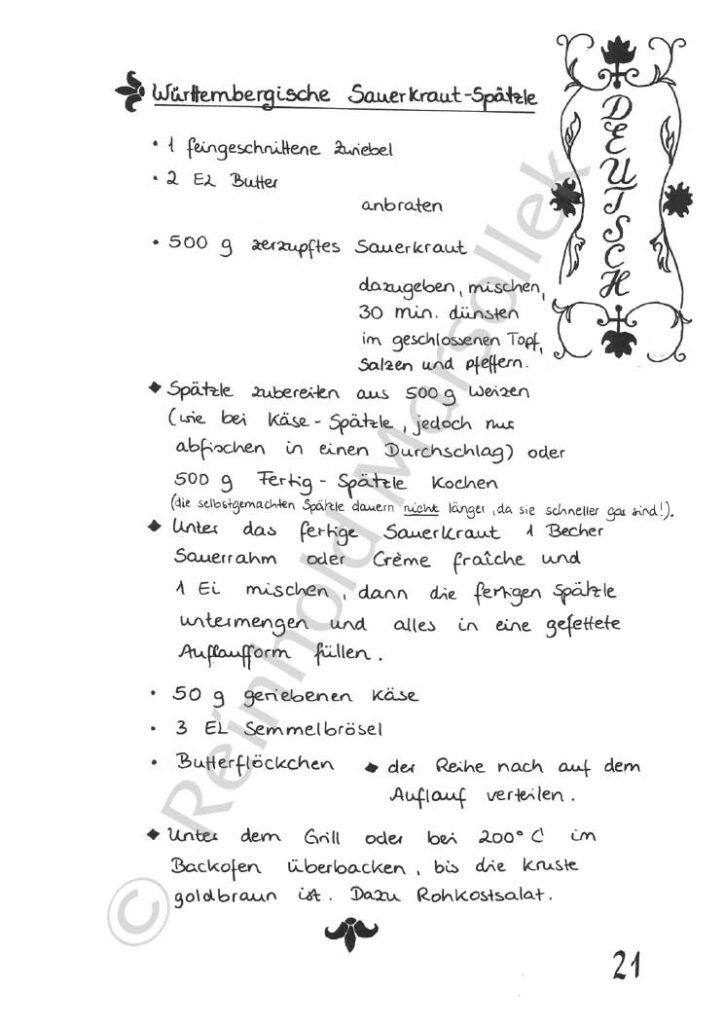 Württembergische Sauerkraut-Spätzle
DEUTSCH
• 1 feingeschnittene Zwiebel
• 2 EL Butter
anbraten
• 500 g zerzupftes Sauerkraut
dazugeben, mischen,
30 min. dünsten
im geschlossenen Topf,
Salzen und pfeffern.
◆ Spätzle zubereiten aus 500 g Weizen
(wie bei Käse-Spätzle, jedoch nur
abfischen in einen Durchschlag) oder
500 g Fertig-Spätzle Kochen
(die selbstgemachten Spätzle dauern nicht länger, da sie schneller gar sind!).
◆ Unter das fertige Sauerkraut 1 Becher
Sauerrahm oder Crème fraîche und
1 Ei mischen, dann die fertigen Spätzle
untermengen und alles in eine gefettete
Auflaufform füllen.
• 50 g geriebenen Käse
• 3 EL Semmelbrösel
• Butterflöckchen ◆ der Reihe nach auf dem
Auflauf verteilen.
◆ Unter dem Grill oder bei 200° C im
Backofen überbacken, bis die Kruste
goldbraun ist. Dazu Rohkostsalat.
21
© Reinhold Marsollek